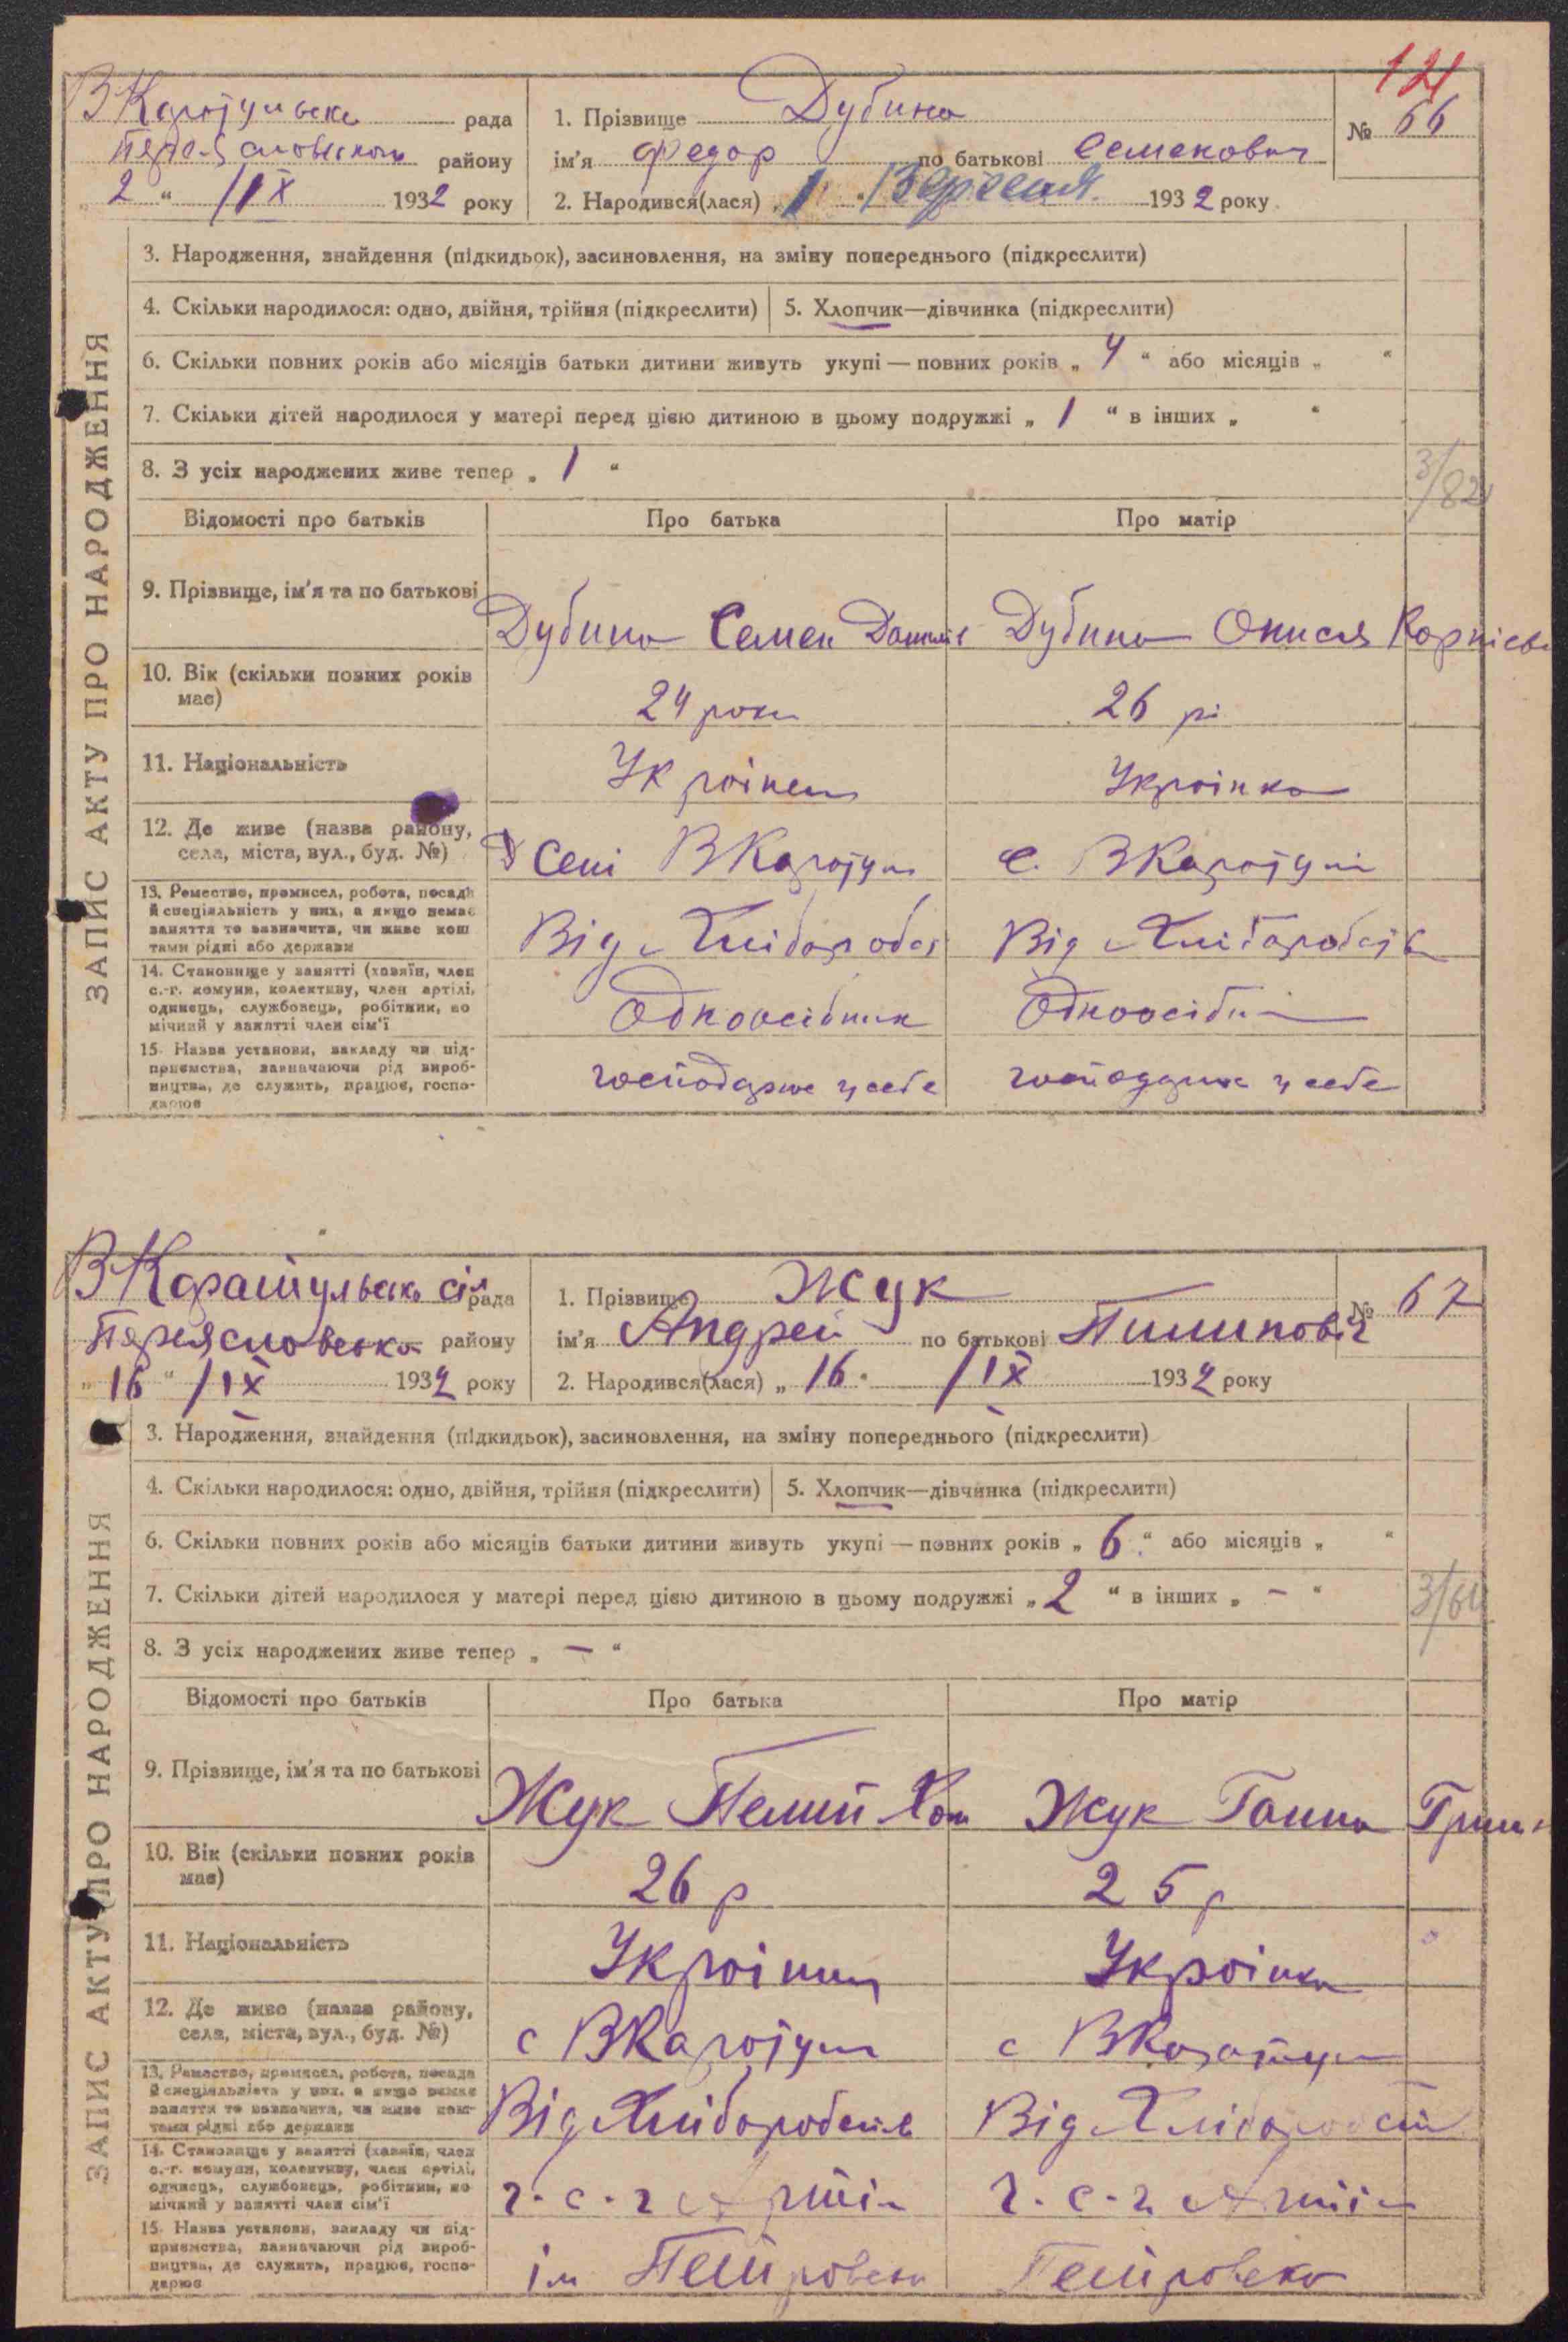 121
В Каратульська рада
Переясловського району
„ 2 “ /IX 1932 року
1. Прізвище Дубина
№ 66
ім'я Федор по батькові Семенович
2. Народився(лася) „ 1 “ Вересня 1932 року
ЗАПИС АКТУ ПРО НАРОДЖЕННЯ
3. Народження, знайдення (підкидьок), засиновлення, на зміну попереднього (підкреслити)
4. Скільки народилося: одно, двійня, трійня (підкреслити) 5. Хлопчик—дівчинка (підкреслити)
6. Скільки повних років або місяців батьки дитини живуть укупі — повних років „ 4 “ або місяців „ “
7. Скільки дітей народилося у матері перед цією дитиною в цьому подружжі „ 1 “ в інших „ “
8. З усіх народжених живе тепер „ 1 “
3/82
Відомості про батьків Про батька Про матір
9. Прізвище, ім'я та по батькові
Дубина Семен Дубина Опися Карпієв
10. Вік (скільки повних років
має)
24 роки 26 рі
11. Національність
Украінец Украінка
12. Де живе (назва району,
села, міста, вул., буд. №)
В Селі В Каратул с. В Каратулі
13. Ремество, промисел, робота, посада
й спеціяльність у них, а якщо немає
заняття то зазначити, чи живе кош
тами рідні або держави
Від Хліборобст Від Хліборобств
14. Становище у занятті (хазяїн, член
с.-г. комуни, колективу, член артілі,
одинець, службовець, робітник, по
мічний у занятті член сім'ї
Одноосібник Одноосібни
15. Назва установи, закладу чи під-
приємства, зазначаючи рід вироб-
ництва, де служить, працює, госпо-
дарює
господарює у себе господарює у себе
В Каратульська сіл рада
Переясловська району
„ 16 “ /IX 1932 року
1. Прізвище Жук
№ 67
ім'я Андрей по батькові Пилипович
2. Народився(лася) „ 16 “ /IX 1932 року
ЗАПИС АКТУ ПРО НАРОДЖЕННЯ
3. Народження, знайдення (підкидьок), засиновлення, на зміну попереднього (підкреслити)
4. Скільки народилося: одно, двійня, трійня (підкреслити) 5. Хлопчик—дівчинка (підкреслити)
6. Скільки повних років або місяців батьки дитини живуть укупі — повних років „ 6 “ або місяців „ “
7. Скільки дітей народилося у матері перед цією дитиною в цьому подружжі „ 2 “ в інших „ – “
8. З усіх народжених живе тепер „ – “
Відомості про батьків Про батька Про матір
9. Прізвище, ім'я та по батькові
Жук Хом Жук Ганна Гриш
10. Вік (скільки повних років
має)
26 р 25 р
11. Національність
Украінец Украінка
12. Де живе (назва району,
села, міста, вул., буд. №)
с В Каратул с В Каратул
13. Ремество, промисел, робота, посада
й спеціяльність у них, а якщо немає
заняття то зазначити, чи живе кош-
тами рідні або держави
Від Хліборобств Від Хліборобст
14. Становище у занятті (хазяїн, член
с.-г. комуни, колективу, член артілі,
одинець, службовець, робітник, по
мічний у занятті член сім'ї
ч. с. г Артіл ч. с. г. Артіл
15. Назва установи, закладу чи під-
приємства, зазначаючи рід вироб-
ництва, де служить, працює, госпо-
дарює
ім Петровськ Петровсько